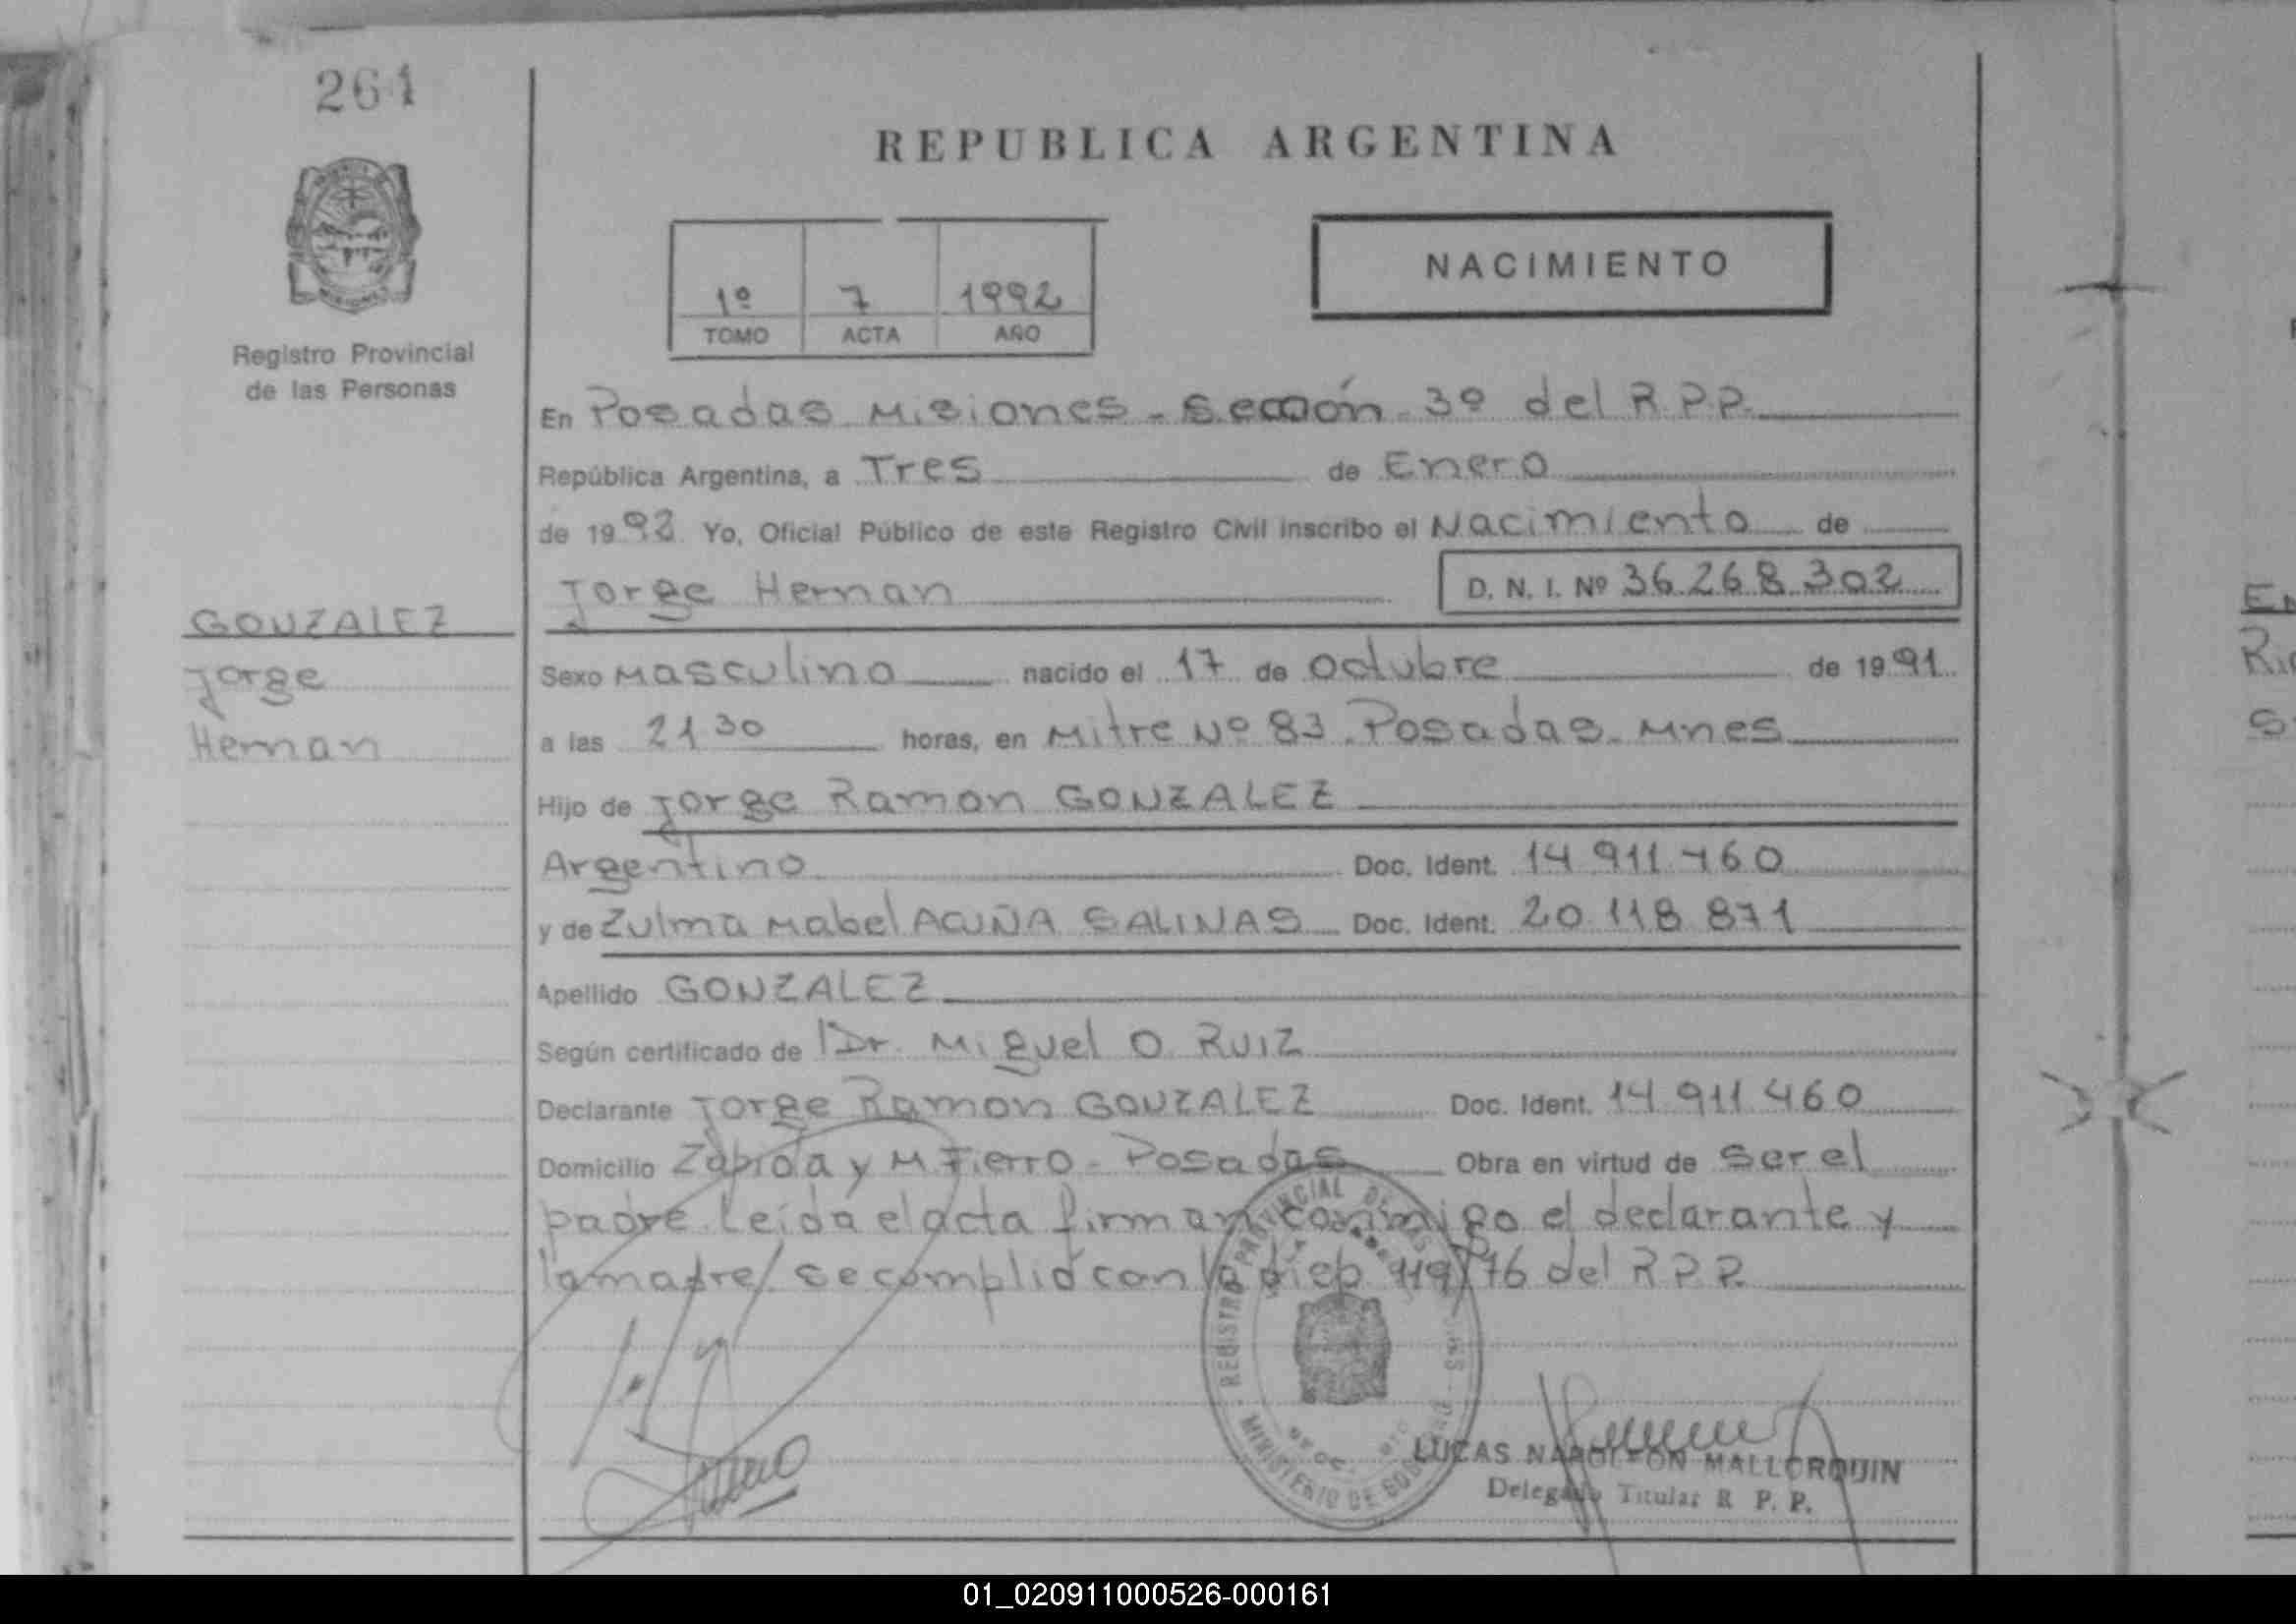 261
REPUBLICA ARGENTINA
NACIMIENTO
1º 7 1992
TOMO ACTA AÑO
Registro Provincial
de las Personas
En Posadas Misiones - Sección - 3º del R.P.P.
República Argentina, a Tres de Enero
de 1992 Yo, Oficial Público de este Registro Civil inscribo el Nacimiento de
Jorge Hernan D. N. I. Nº 36.268.302
GONZALEZ
Jorge
Hernan
Sexo Masculino nacido el 17 de Octubre de 1991
a las 21 30 horas, en Mitre Nº 83 - Posadas - Mnes
Hijo de Jorge Ramon GONZALEZ
Argentino Doc. Ident. 14 911 460
y de Zulma Mabel ACUÑA SALINAS Doc. Ident. 20 118 871
Apellido GONZALEZ
Según certificado de Dr. Miguel O. RUIZ
Declarante Jorge Ramon GONZALEZ Doc. Ident. 14 911 460
Domicilio Zapiola y M Fierro - Posadas Obra en virtud de ser el
padre. Leída el acta firman conmigo el declarante y
la madre/ se complió con la disp. 119/76 del R P P.
REGISTRO PROVINCIAL DE LAS
MINISTERIO DE GOBIERNO
LUCAS NAPOLEON MALLORQUIN
Delegado Titular R. P. P.
01_020911000526-000161